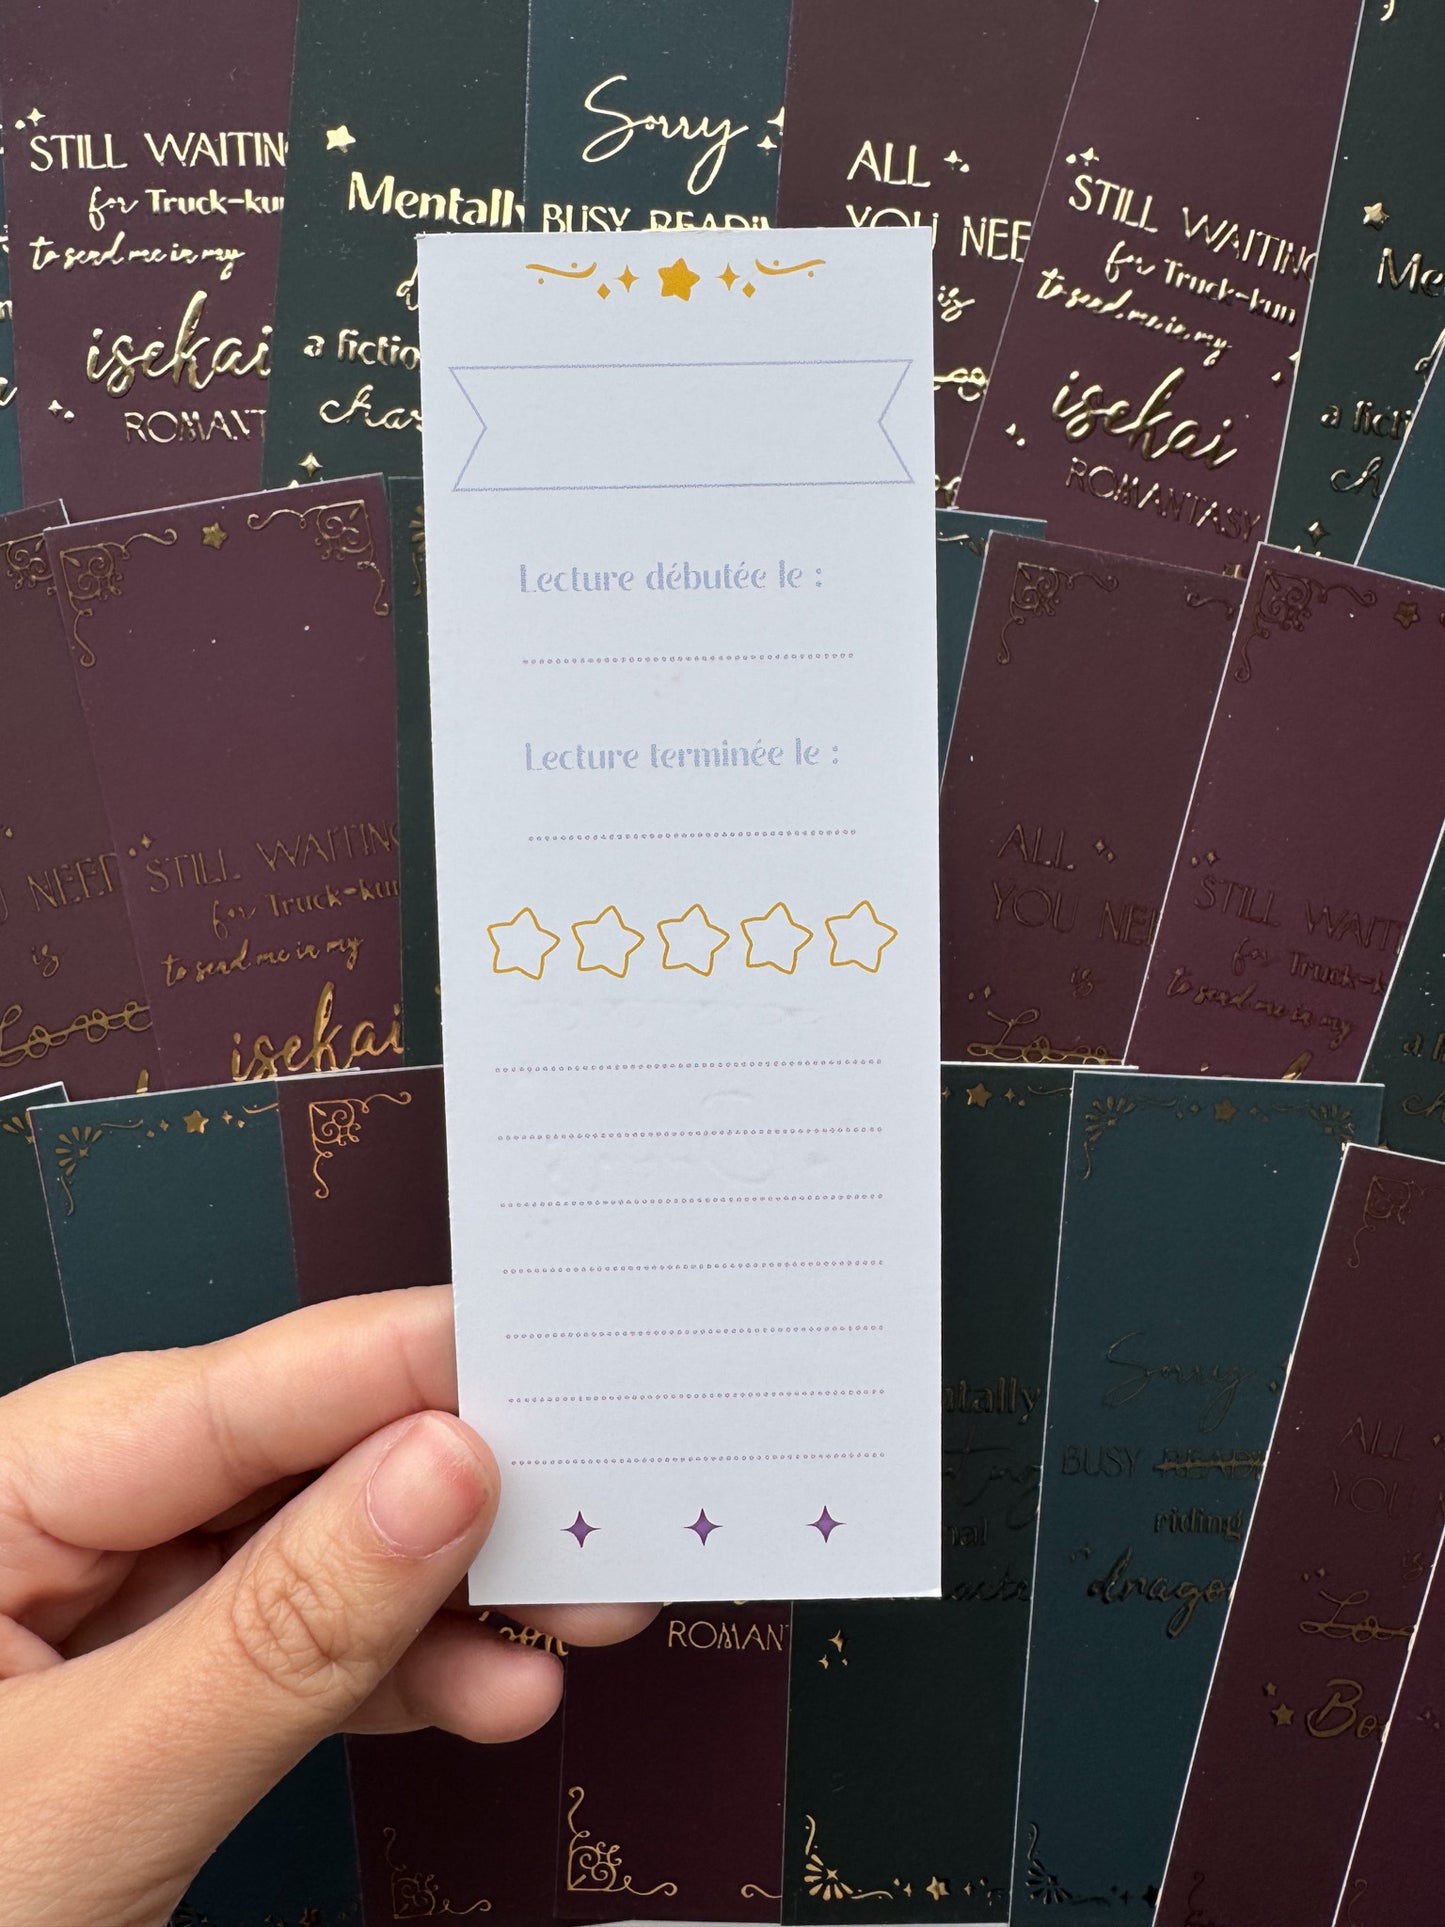 STILL WAITIN
for Truck-kun
to send me in my
isekai
ROMANT
Mentally
a fictio
Sorry
BUSY READIN
ALL
YOU NEE
is
STILL WAITING
for Truck-kun
to send me in my
isekai
ROMANTASY
Me
a ficti
Lecture débutée le :
Lecture terminée le :
YOU NEED
is
Love
STILL WAITING
for Truck-kun
to send me in my
isekai
ALL
YOU NEE
is
Lo
STILL WAITI
for Truck-k
to send me in my
ntally
nal
ROMAN
Sorry
BUSY READIN
riding
dragon
ALL
YOU
is
Lo
Bo